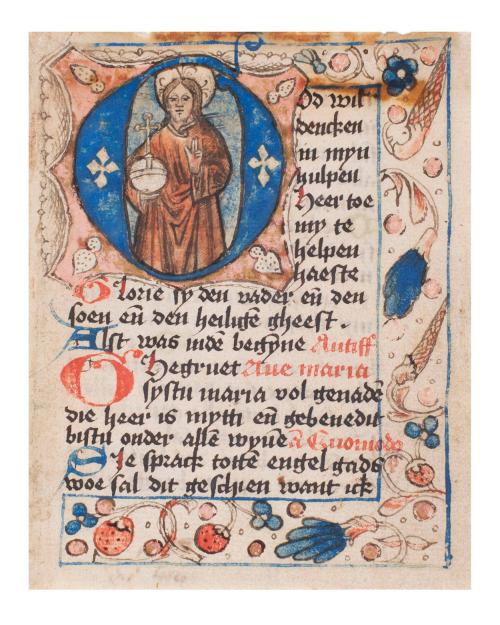 Od wil
dencken
in myn
hulpen
Heer toe
my te
helpen
haeste
Glorie sy den vader eñ den
soen eñ den heiligẽ gheest.
Alst was indẽ begyne Antiff
Ghegruet Aue maria
systu maria vol genadẽ
die heer is mytti eñ gebenedit
bistu onder allẽ wyuẽ ã Quomodo
Sie sprack tottẽ engel gads
woe sal dit geschien want ick